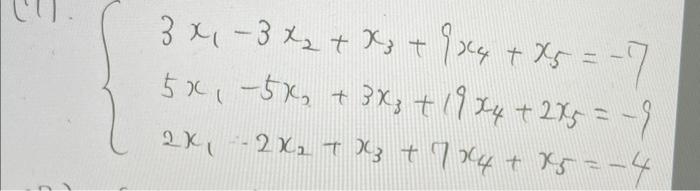 (1).
3x₁ - 3x₂ + x₃ + 9x₄ + x₅ = -7
5x₁ - 5x₂ + 3x₃ + 19x₄ + 2x₅ = -9
2x₁ - 2x₂ + x₃ + 7x₄ + x₅ = -4